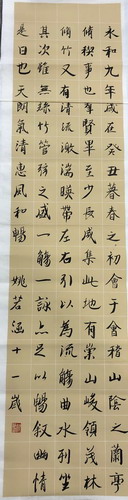 永和九年歲在癸丑暮春之初會于會稽山陰之蘭亭
脩稧事也羣賢畢至少長咸集此地有崇山峻領茂林
脩竹又有清流激湍暎帶左右引以為流觴曲水列坐
其次雖無絲竹管弦之盛一觴一詠亦足以暢叙幽情
是日也天朗氣清惠風和暢 姚若涵十一歲